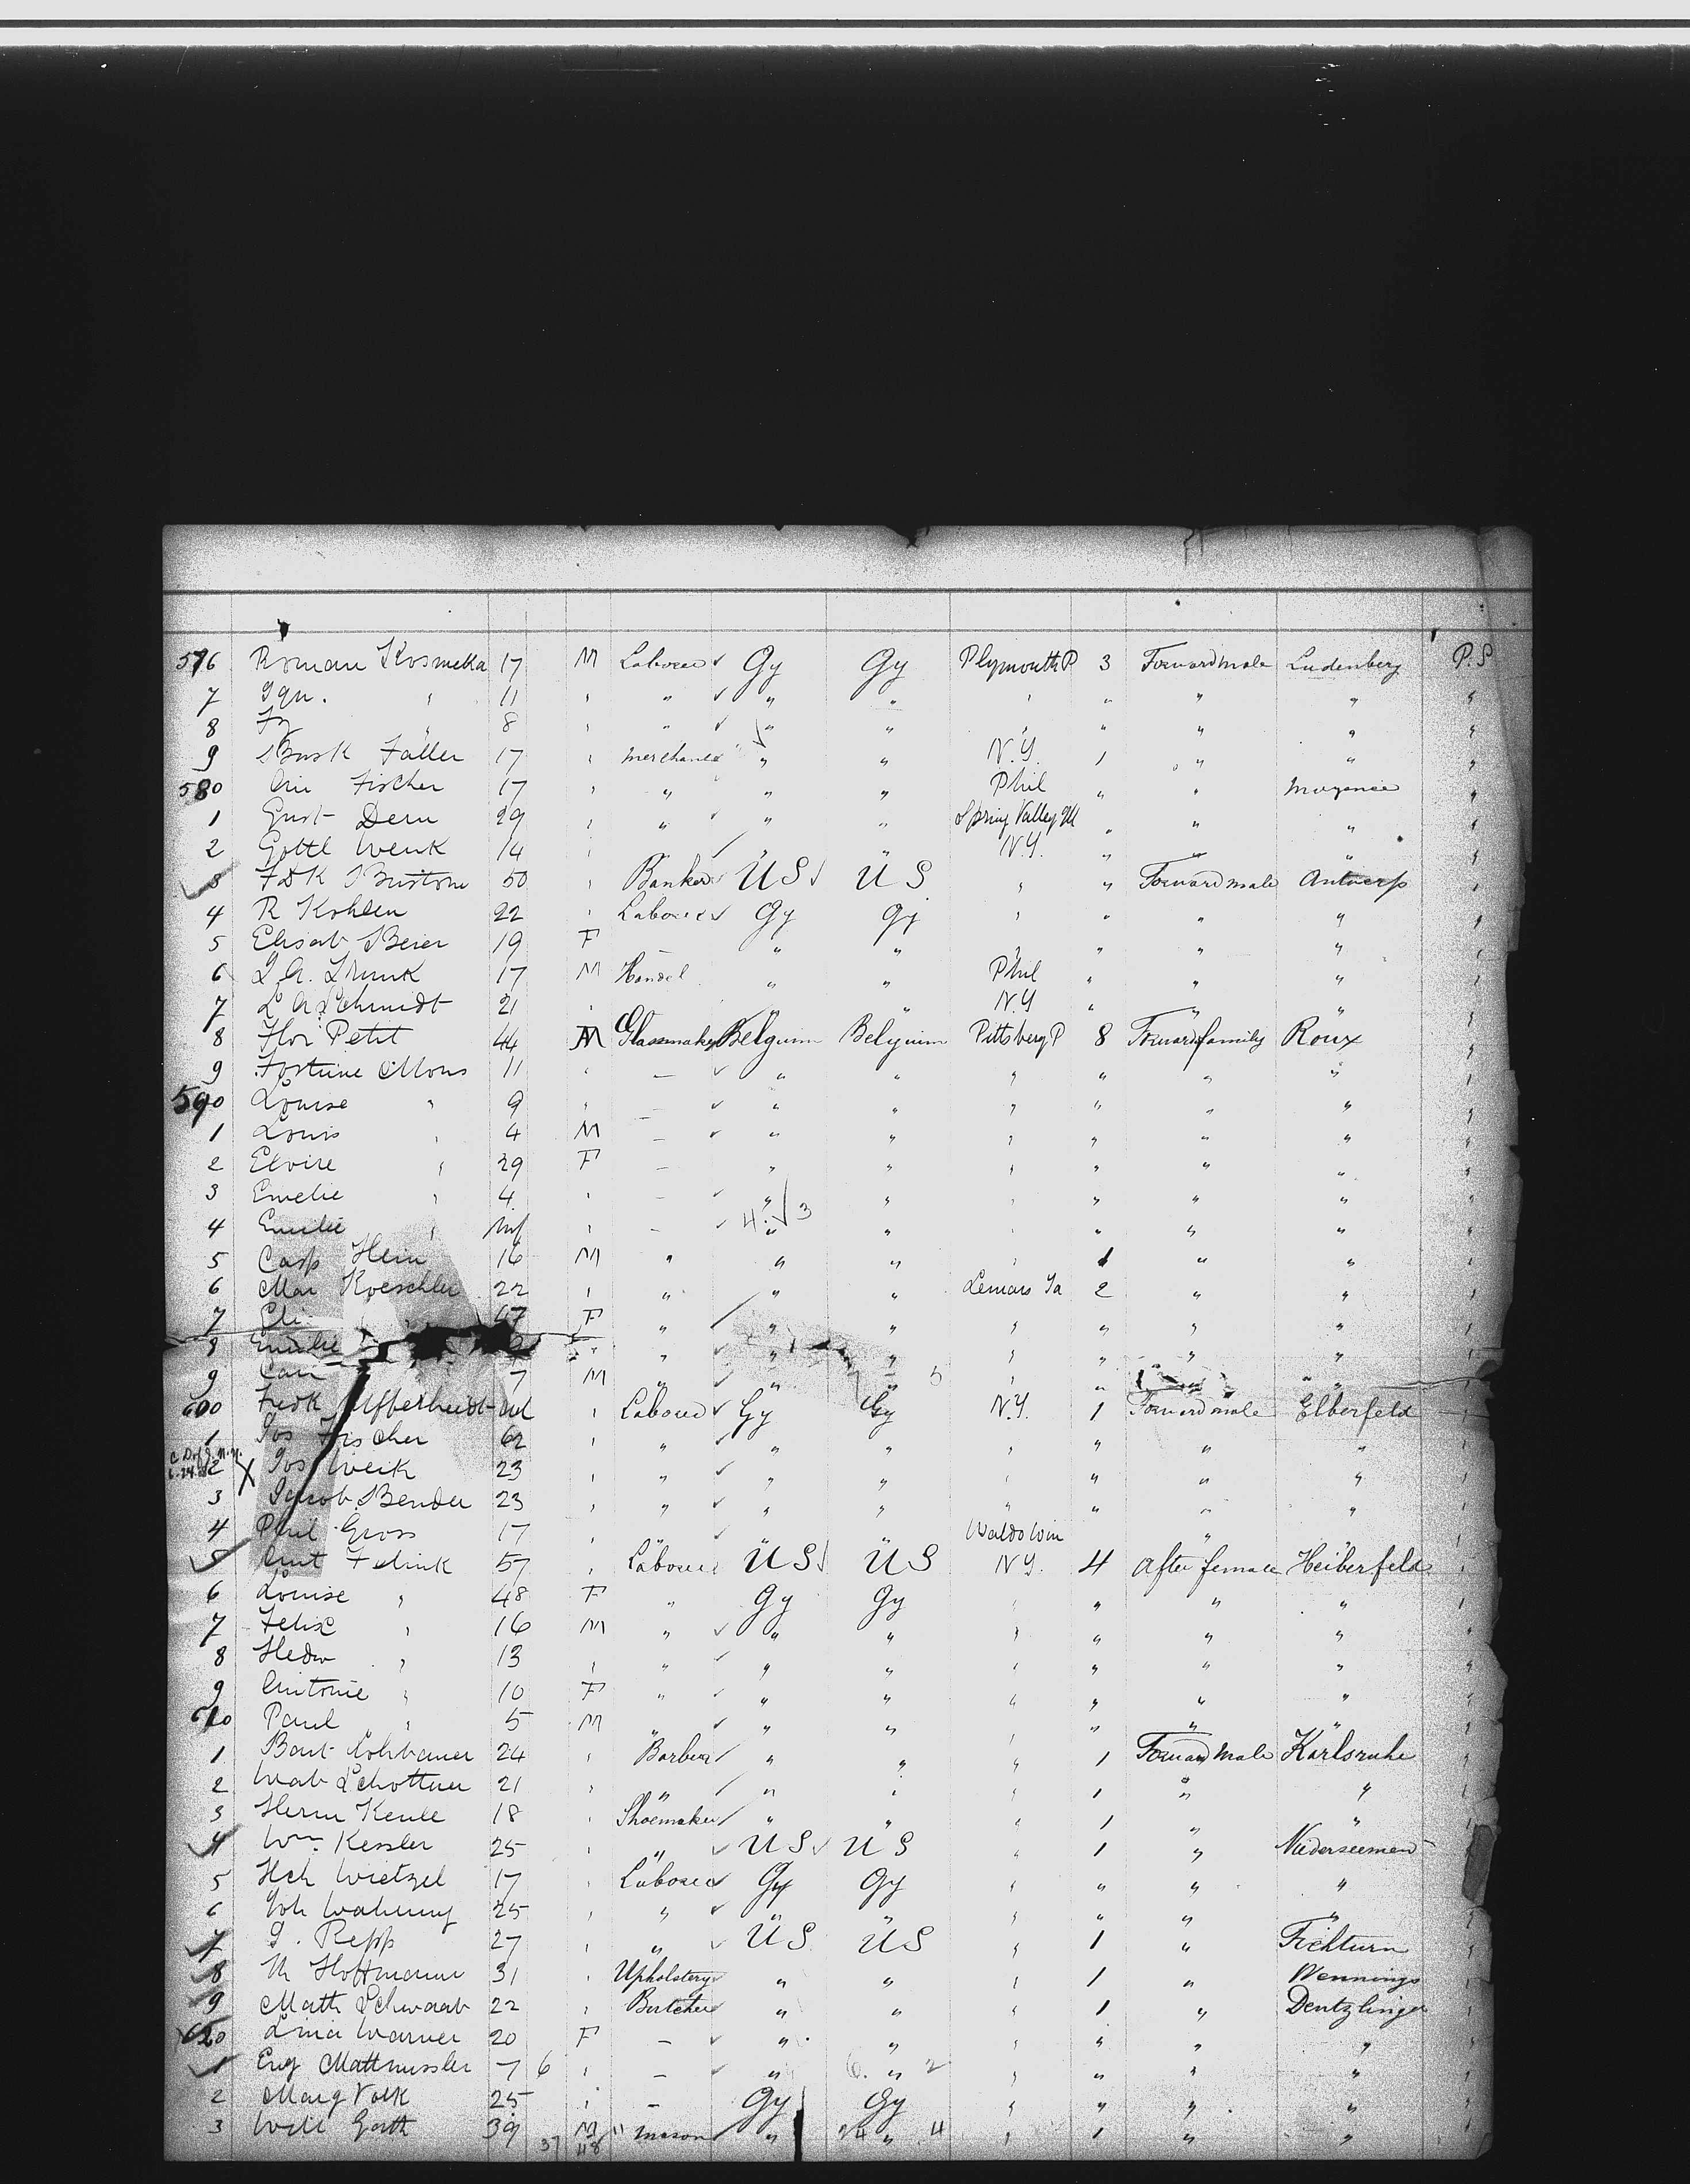 576 Roman Kosmeka 17 M Laborer ✓ Gy Gy Plymouth P. 3 Forward male Ludenberg P.S
7 Ign. " 11 " " ✓ " " " " " " "
8 Fz " 8 " " ✓ " " " " " " "
9 Faller 17 " merchant " " N.Y. 1 " " "
580 Fischer 17 " " " " Phil " " Mayence "
1 Gust Dern 29 " " ✓ " " Spring Valley " " " "
2 Gottl Wenk 14 " ✓ " " N.Y. " " " "
✓ 3 Fdk 50 " Banker ✓ U S ✓ U S " " Forward male Antwerp "
4 R Kohlen 22 " Laborer ✓ Gy Gy " " " " "
5 Elisab Beier 19 F " " " " " "
6 17 M Handel " " Phil " " " "
7 L A Schmidt 21 " " " N.Y " " " "
8 Flor Petit 44 M Glassmaker Belgium Belgium Pittsberg P 8 Forward family Roux "
9 Fortune Mons 11 " — ✓ " " " " " " "
590 Louise " 9 " — ✓ " " " " " " "
1 Louis " 4 M — ✓ " " " " " " "
2 Elvire " 29 F — " " " " " " "
3 Emelie " 4 " — ✓ " " " " " " "
4 Emelie " Inf " — ✓ 4 " ✓ 3 " " " " " "
5 Casp Hein 16 M " " " " 1 " " "
6 Mar Koeschler 22 " " " " Lemars Ia 2 " " "
7 Eli 47 F " ✓ " " " " " " "
8 Emilie " " ✓ " " " " " " "
9 Carl 7 M " ✓ " " 5 " " " "
600 Fredk " Laborer ✓ Gy Gy N.Y. 1 Forward male Elberfeld "
1 Jos Fischer 62 " " ✓ " " " " " " "
2 X Jos Weik 23 " " ✓ " " " " " " "
3 Jacob Bender 23 " " ✓ " " " " " " "
4 Phil Gross 17 " ✓ Waldo Win " " "
✓ 5 57 " Laborer U S ✓ U S N Y. 4 After female Heiberfeld "
6 Louise " 48 F " Gy Gy " " " " "
7 Felix " 16 M " ✓ " " " " " " "
8 Hedw " 13 " " ✓ " " " " " " "
9 Antonie " 10 F " ✓ " " " " " " "
610 Paul " 5 M " ✓ " " " " " " "
1 24 " Barber ✓ " " " 1 Forward Male Karlsruhe "
2 Schottner 21 " " ✓ " " " 1 " " "
3 Herm Keule 18 " Shoemaker ✓ " " " 1 " " "
✓ 4 Wm. Kessler 25 " " ✓ U S ✓ U S " 1 " Niederseemen "
5 Hch Wietzel 17 " Laborer ✓ Gy Gy " " " " "
6 Joh 25 " " ✓ " " " " " " "
✓ 7 J. Repp 27 " " ✓ U S U S " 1 " "
✓ 8 Hoffmann 31 " Upholstery " " " 1 " Wennings "
✓ 9 Math Schwaab 22 " Butcher " " " 1 " Dentzlingen "
✓ 620 Lina Warner 20 F — ✓ " " " " " " "
✓ 1 Eug 7 6 " — ✓ " 6. " 2 " " " " "
2 Marg Volk 25 " — Gy Gy " " " " "
3 Will Goth 39 M " mason ✓ " 24 " 4 " 1 " " "
37 118